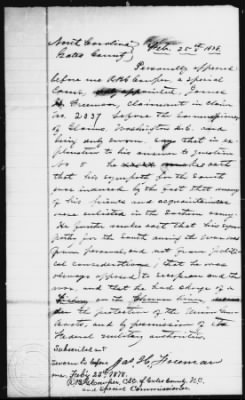 North Carolina
Gates County Feb. 25th 1878.
Personally appeared
before me R.B.G. Cowper, a special
Comr. appointed, James
H. Freeman, Claimant in claim
No. 2337 before the Commissioners
of Claims, Washington D.C. and
being duly sworn, says that in ex-
planation to his answer to question
No 8 he makes oath
that his sympathy for the South
was induced by the fact that many
of his friends and acquaintances
were enlisted in the Southern army.
He further makes oath that his sym-
pathy for the South during the war was
from personal and not from political
considerations; that he was
always opposed to secession and the
war, and that he had charge of a
Fishery on the Chowan river,
under the protection of the Union Gun-
boats, and by permission of the
Federal military authorities.
Subscribed &
sworn to before Jas H, Freeman
me, Feby 25th 1878.
R.B.G. Cowper, C.S.C. of Gates County, N.C.
and Special Commissioner.